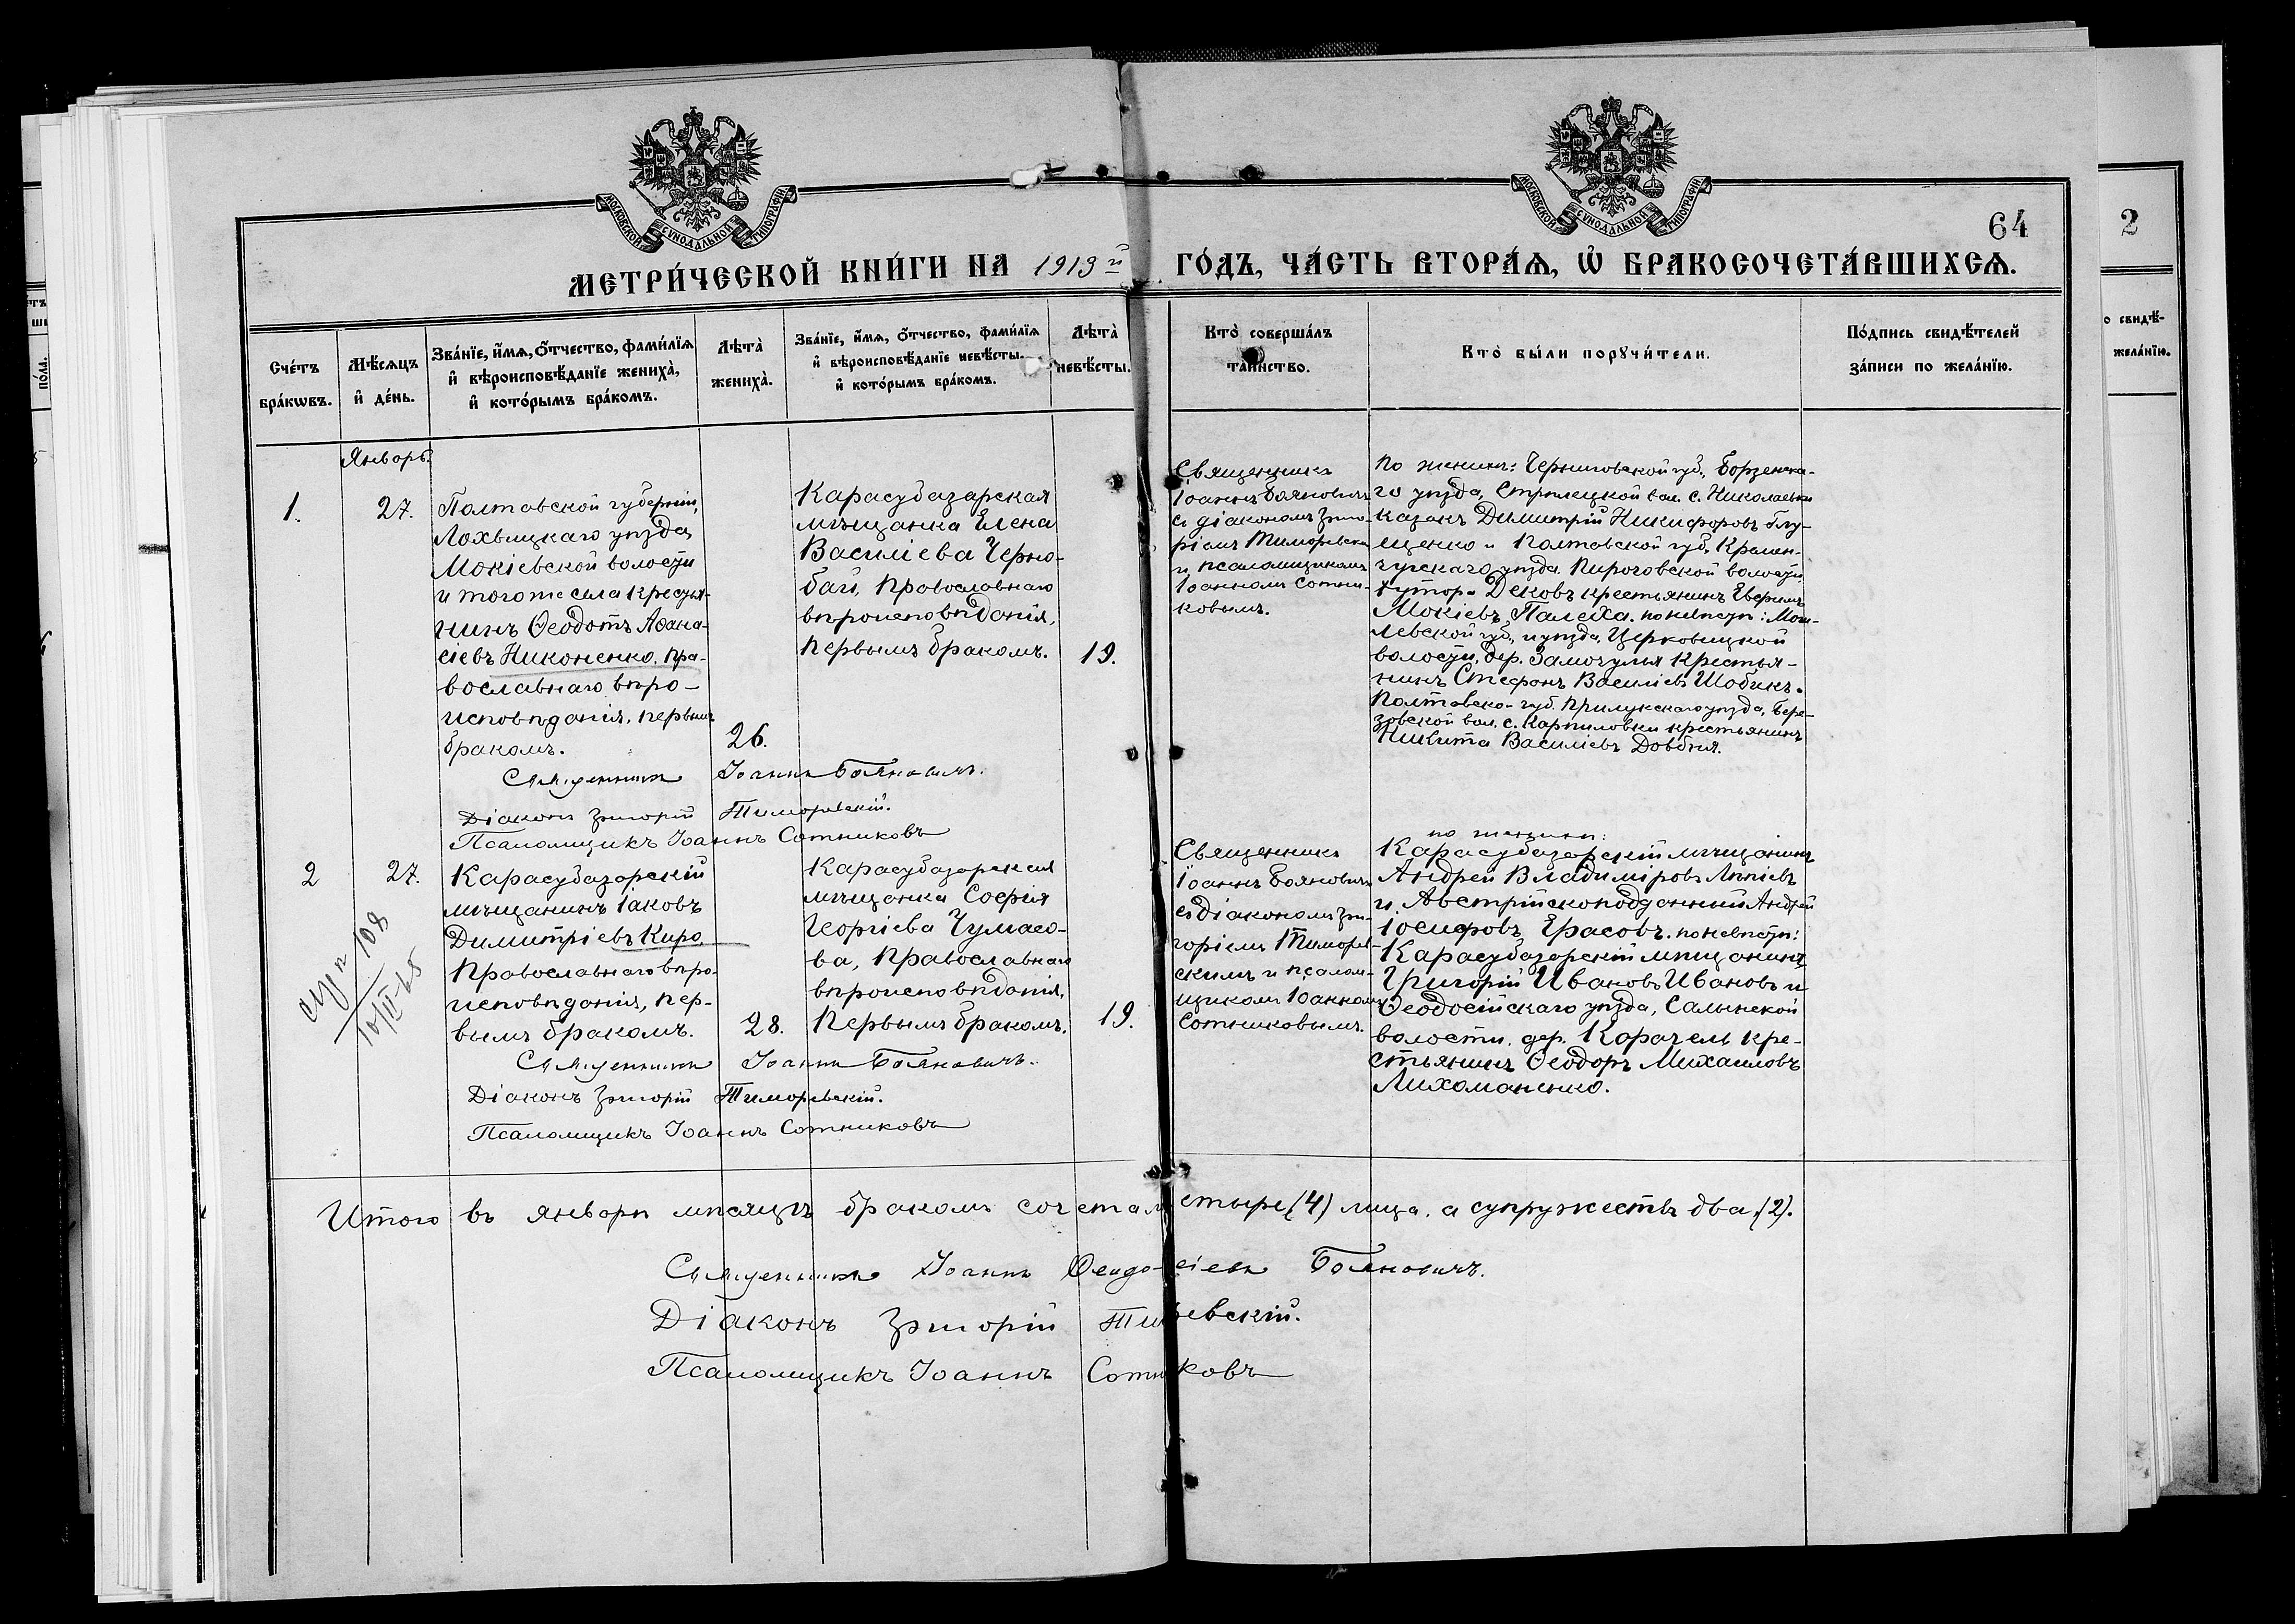 МОСКОВСКОЙ СѴНОДАЛЬНОЙ ТИПОГРАФІИ
МОСКОВСКОЙ СѴНОДАЛЬНОЙ ТИПОГРАФІИ
64
2
МЕТРИ́ЧЕСКОЙ КНИ́ГИ НА 1913й ГО́ДЪ, ЧА́СТЬ ВТОРА́Ѧ, Ѡ҆ БРАКОСОЧЕТА́ВШИХСѦ.
Сче́тъ бра́кѡвъ.
Мѣ́сѧцъ и҆ де́нь.
Зва́нїе, и҆́мѧ, ѻ҆́тчество, фами́лїѧ и҆ вѣроисповѣ́данїе жениха̀, и҆ кото́рымъ бра́комъ.
Лѣта̀ жениха̀.
Зва́нїе, и҆́мѧ, ѻ҆́тчество, фами́лїѧ и҆ вѣроисповѣ́данїе невѣ́сты, и҆ кото́рымъ бра́комъ.
Лѣта̀ невѣ́сты.
Кто̀ соверша́лъ та́инство.
Кто̀ бы́ли порꙋчи́тели.
По́дпись свидѣ́телей за́писи по жела́нїю.
Январь.
1.
27.
Полтавской губерніи,
Лохвицкаго уѣзда,
Мокіевской волости
и того же села крестья-
нинъ Ѳеодотъ Аѳана-
сіевъ Никоненко, пра-
вославнаго вѣро-
исповѣданія, первымъ
бракомъ.
26.
Карасубазарская
мѣщанка Елена
Василіева Черно-
бай, православнаго
вѣроисповѣданія,
первымъ бракомъ.
19.
Священникъ
Іоаннъ Бояновичъ
съ діакономъ Григо-
ріемъ Тиморевскимъ
и псаломщикомъ
Іоанномъ Сотни-
ковымъ.
по женихѣ: Черниговской губ., Борзенска-
го уѣзда, Стрѣлецкой вол. с. Николаевки
казакъ Димитрій Никифоровъ Глу-
щенко и Полтавской губ. Кремен-
чугскаго уѣзда, Пироговской волости
хутора Дековъ крестьянинъ
Мокіевъ Палеха. по невѣстѣ: Моги-
левской губ. и уѣзда, Церковицкой
волости, дер. Замочулья крестья-
нинъ Стефанъ Василіевъ Шобикъ и
Полтавской губ. Прилукскаго уѣзда, Бере-
зовской вол. с. Карпиловки крестьянинъ
Никита Василіевъ Довбня.
Священникъ Іоаннъ Бояновичъ.
Діаконъ Григорій Тиморевскій.
Псаломщикъ Іоаннъ Сотниковъ
2
27.
108
Карасубазарскій
мѣщанинъ Іаковъ
Димитріевъ Киро,
православнаго вѣро-
исповѣданія, пер-
вымъ бракомъ.
28.
Карасубазарская
мѣщанка Софія
Георгіева Чумасо-
ва, православнаго
вѣроисповѣданія,
первымъ бракомъ.
19.
Священникъ
Іоаннъ Бояновичъ
съ діакономъ Гри-
горіемъ Тиморев-
скимъ и псалом-
щикомъ Іоанномъ
Сотниковымъ.
по женихѣ:
Карасубазарскій мѣщанинъ
Андрей Владиміровъ
и Австрійскоподданный Андрей
Іосифовъ Ерасовъ. по невѣстѣ:
Карасубазарскій мѣщанинъ
Григорій Ивановъ Ивановъ и
Ѳеодосійскаго уѣзда, Салынской
волости, дер. Карачель кре-
стьянинъ Ѳеодоръ Михаиловъ
Лихоманенко.
Священникъ Іоаннъ Бояновичъ.
Діаконъ Григорій Тиморевскій.
Псаломщикъ Іоаннъ Сотниковъ
Итого въ январѣ мѣсяцѣ бракомъ сочетал стыре (4) лица, а супружествъ два (2).
Священникъ Іоаннъ Ѳеодосіевъ Бояновичъ.
Діаконъ Григорій Ти ревскій.
Псаломщикъ Іоаннъ Сотн ковъ